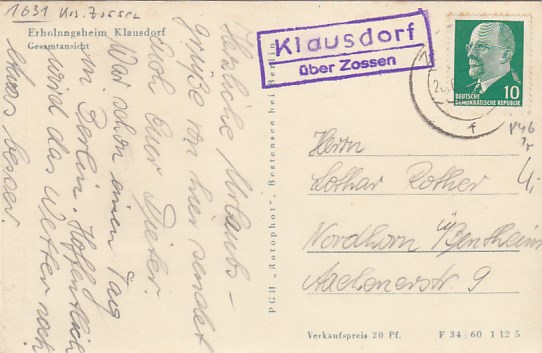 1631 Krs. Zossen
Erholungsheim Klausdorf
Gesamtansicht
Herzliche Urlaubs-
grüße von hier sendet
Euch Euer Dieter.
War schon einen Tag
in Berlin. Hoffentlich
wird das Wetter noch
etwas besser.
PGH „Rotophot", Bestensee bei Berlin
Klausdorf
über Zossen
10
DEUTSCHE
DEMOKRATISCHE REPUBLIK
Herrn
Lothar Rother
Nordhorn ü/Bentheim
Aachenerstr. 9
4,-
Verkaufspreis 20 Pf. F 34 | 60 1 12 5